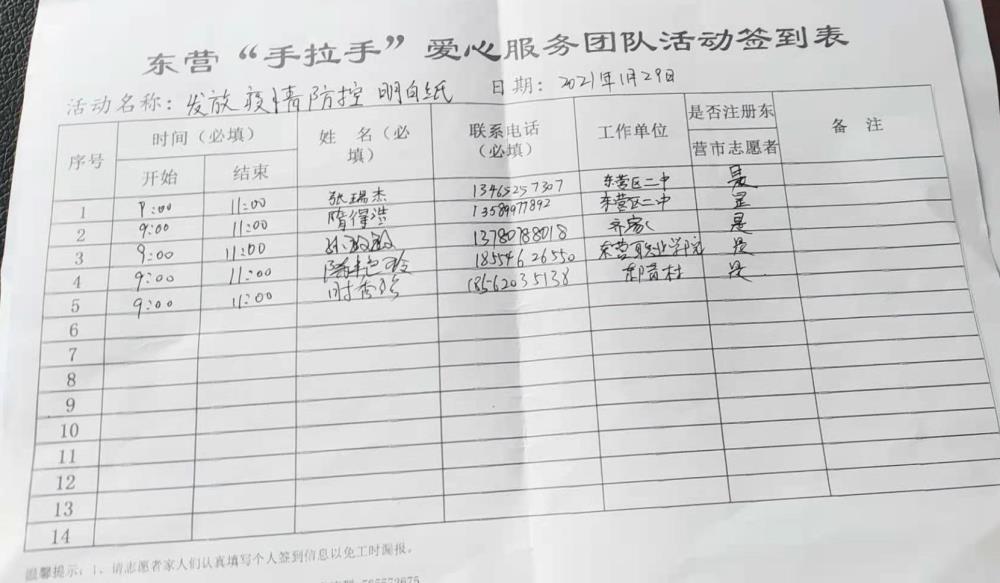 东营“手拉手”爱心服务团队活动签到表
活动名称：发放疫情防控明白纸 日期：2021年1月29日
序号 时间（必填） 姓名（必填） 联系电话（必填） 工作单位 是否注册东营市志愿者 备注
开始 结束
1 9:00 11:00 张瑞杰 13465257307 东营区二中 是
2 9:00 11:00 隋得浩 13589977892 东营区二中 是
3 9:00 11:00 13780788018 是
4 9:00 11:00 18554626550 东营职业学院 是
5 9:00 11:00 时秀珍 18562035138 是
6
7
8
9
10
11
12
13
14
温馨提示：1、请志愿者家人们认真填写个人签到信息以免工时漏报。